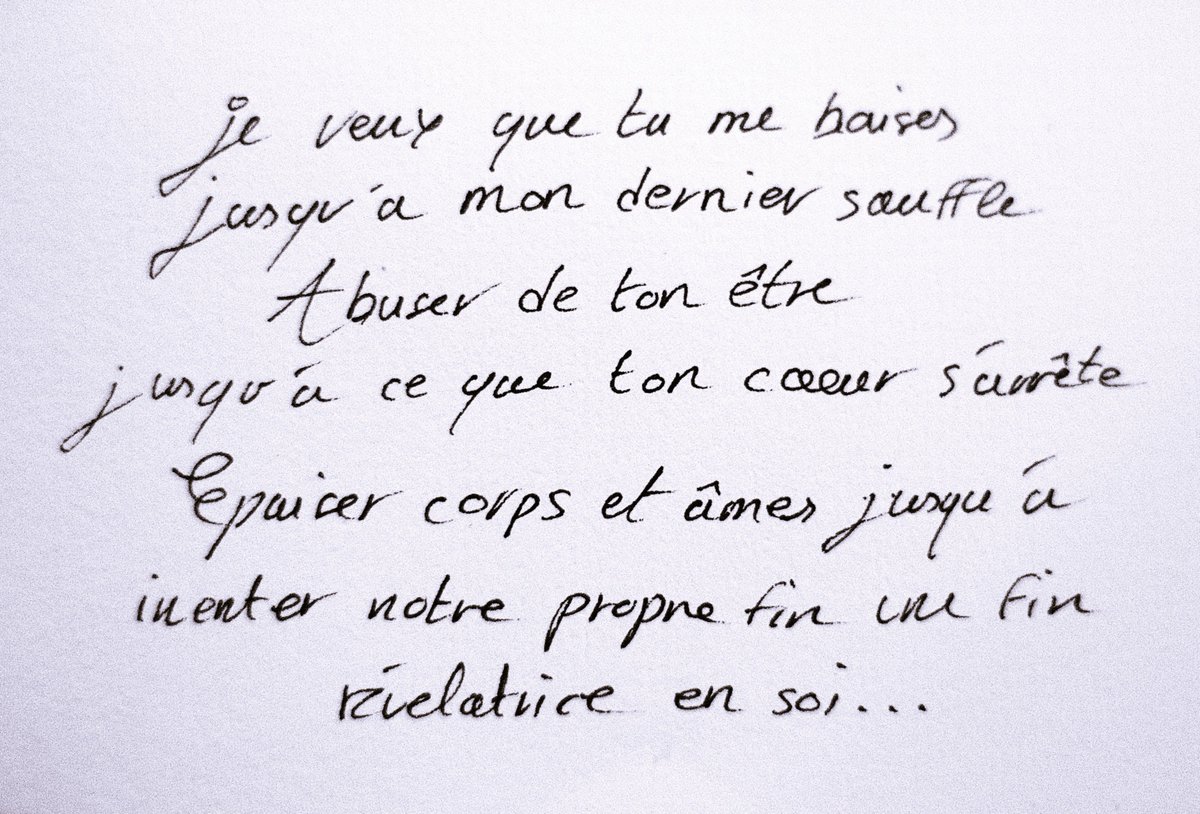 je veux que tu me baises
jusqu'à mon dernier souffle
Abuser de ton être
jusqu'à ce que ton coeur s'arrête
Epuiser corps et âmes jusqu'à
inenter notre propre fin une fin
révelatrice en soi...